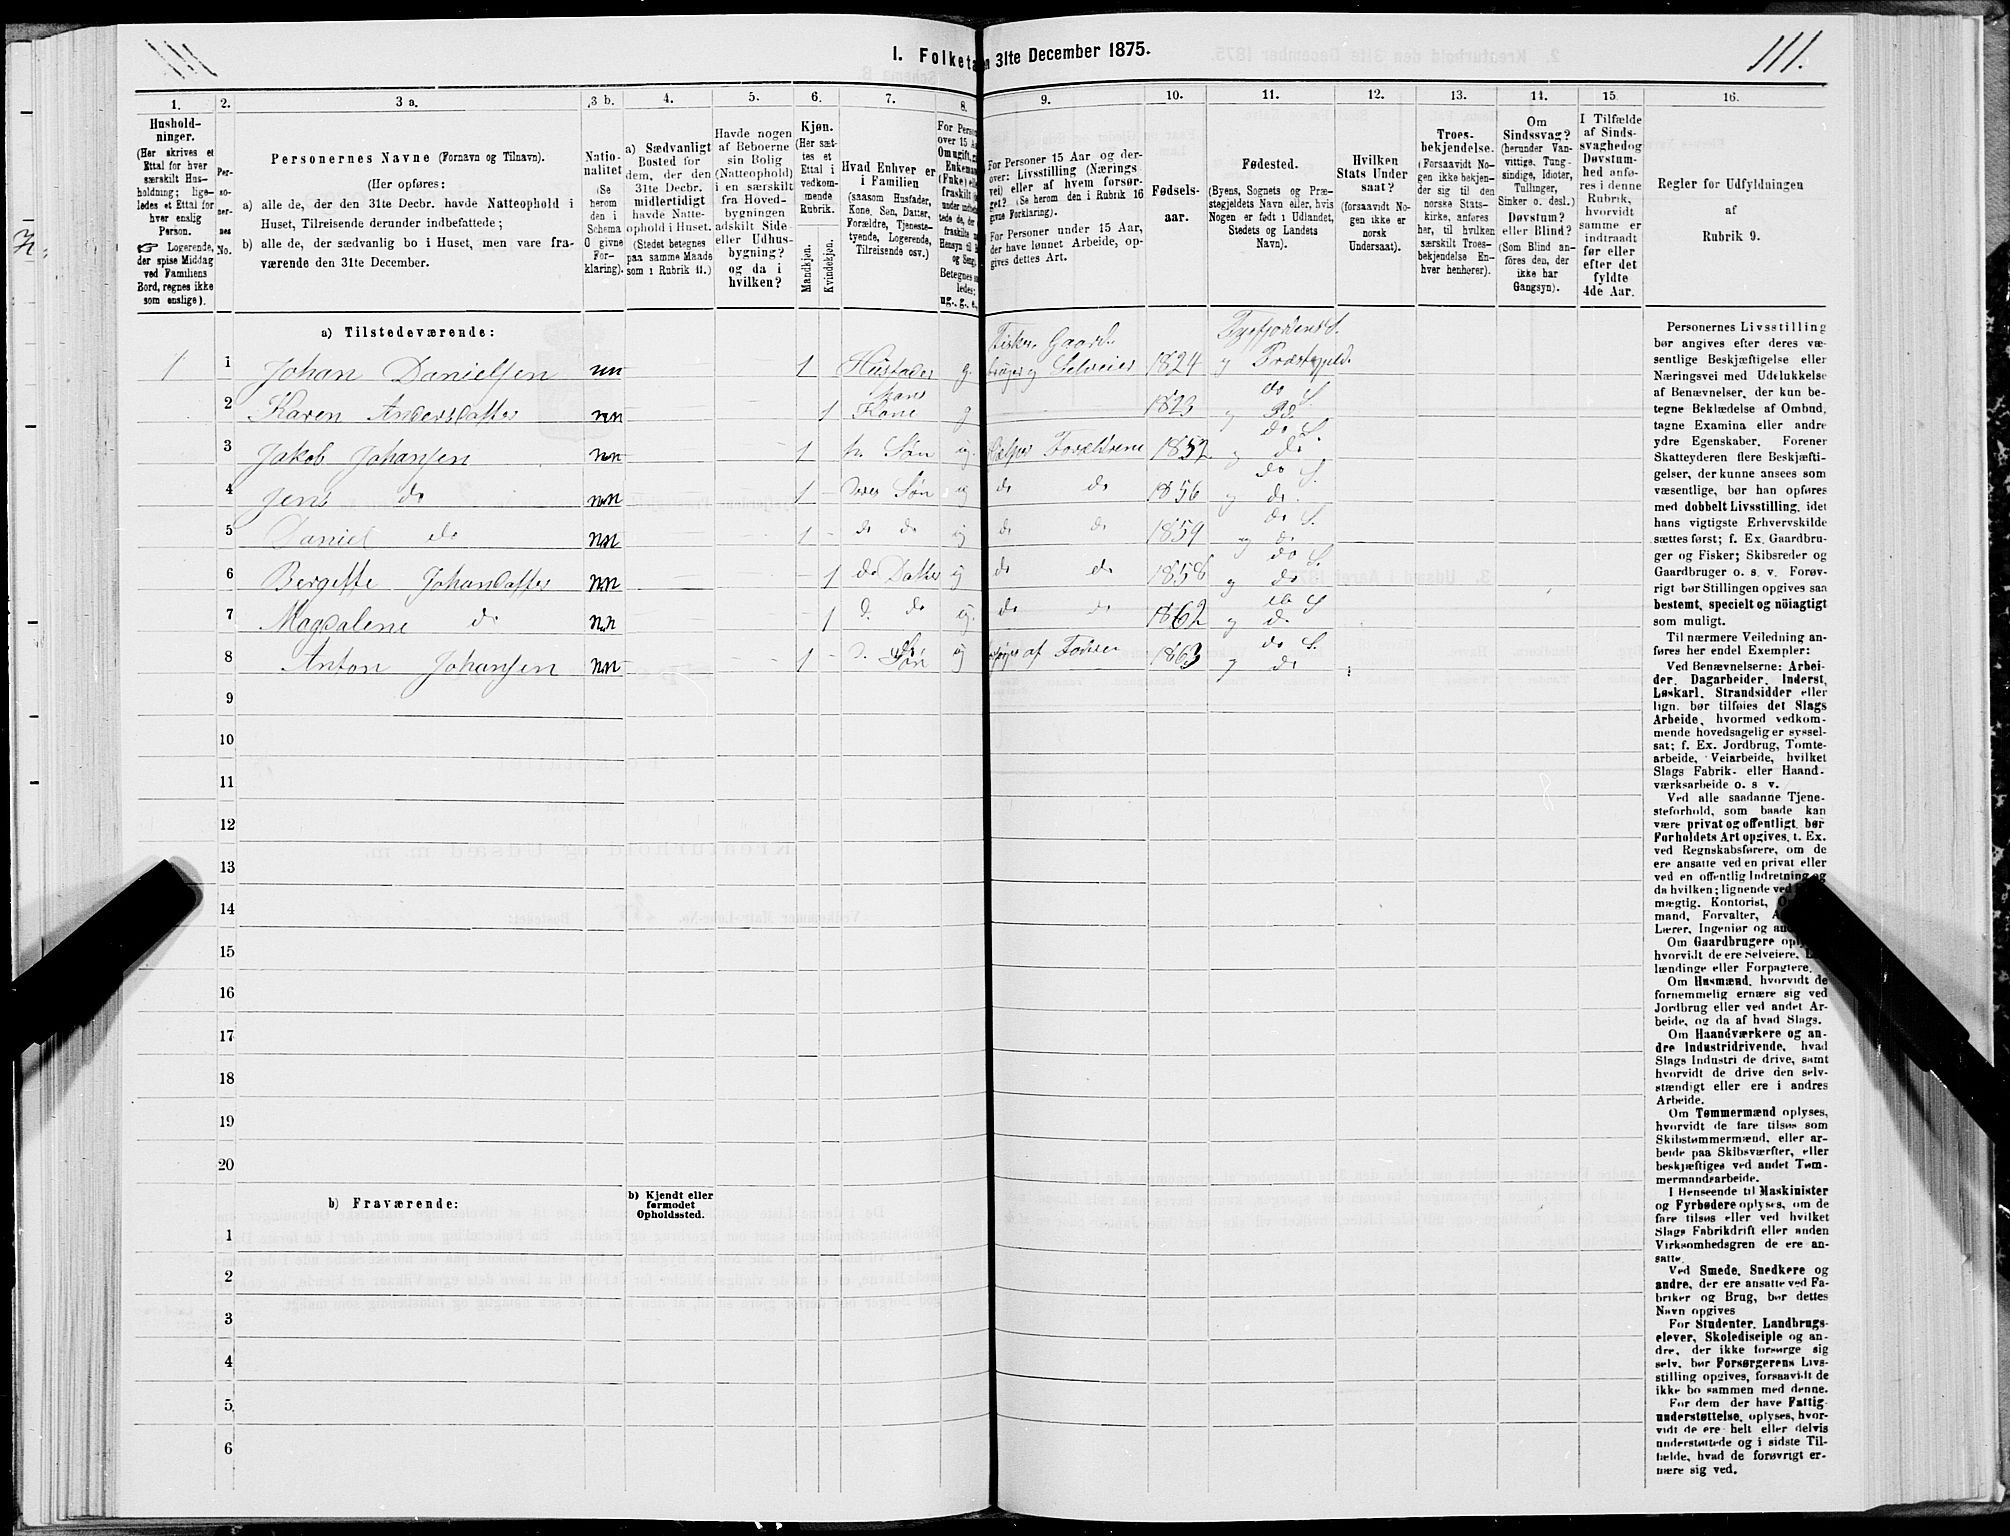 111.
I. Folketa
n 31te December 1875.
1.
2.
3 a.
3 b.
4.
5.
6.
7.
8.
9.
10.
11.
12.
13.
14.
15.
16.
Hushold-
ninger.
(Her skrives et
Ettal for hver
særskilt Hus-
holdning; lige-
ledes et Ettal for
hver enslig
Person.
☞ Logerende,
der spise Middag
ved Familiens
Bord, regnes ikke
som enslige).
Per-
so-
ner-
nes
No.
Personernes Navne (Fornavn og Tilnavn).
(Her opføres:
a) alle de, der den 31te Decbr. havde Natteophold i
Huset, Tilreisende derunder indbefattede;
b) alle de, der sædvanlig bo i Huset, men vare fra-
værende den 31te December.
Natio-
nalitet
(Se
herom
den i
Schema
O givne
For-
klaring).
a) Sædvanligt
Bosted for
dem, der den
31te Decbr.
midlertidigt
havde Natte-
ophold i Huset.
(Stedet betegnes
paa samme Maade
som i Rubrik 11.)
Havde nogen
af Beboerne
sin Bolig
(Natteophold)
i en særskilt
fra Hoved-
bygningen
adskilt Side-
eller Udhus-
bygning?
og da i
hvilken?
Kjøn.
(Her sæt-
tes et
Ettal i
vedkom-
mende
Rubrik.
Mandkjøn.
Kvindekjøn.
Hvad Enhver er
i Familien
(saasom Husfader,
Kone, Søn, Datter,
Forældre, Tjeneste-
tyende, Logerende,
Tilreisende osv.)
For Perso
over 15 Aa
Om ugift, g
Enkeman
(Enke) el
fraskilt
Betegnes
ledes:
ug., g., e.
For Personer 15 Aar og der-
over: Livsstilling (Nærings-
vei) eller af hvem forsør-
get? (Se herom den i Rubrik 16
givne Forklaring).
For Personer under 15 Aar,
der have lønnet Arbeide, op-
gives dettes Art.
Fødsels-
aar.
Fødested.
(Byens, Sognets og Præ-
stegjeldets Navn eller, hvis
Nogen er født i Udlandet,
Stedets og Landets
Navn).
Hvilken
Stats Under
saat?
(forsaavidt No-
gen ikke er
norsk
Undersaat).
Troes-
bekjendelse.
(Forsaavidt No-
gen ikke bekjen-
der sig til den
norske Stats-
kirke, anføres
her, til hvilken
særskilt Troes-
bekjendelse En-
hver henhører).
Om
Sindssvag?
(herunder Van-
vittige, Tung-
sindige, Idioter,
Tullinger,
Sinker o. desl.)
Døvstum?
eller Blind?
(Som Blind an-
føres den, der
ikke har
Gangsyn).
I Tilfælde
af Sinds-
svaghed og
Døvstum-
hed anfø-
res i denne
Rubrik,
hvorvidt
samme er
indtraadt
før eller
efter det
fyldte
4de Aar.
Regler for Udfyldningen
af
Rubrik 9.
a) Tilstedeværende:
Fisker Gaard
1 1 Johan Danielsen nn 1 Husfader g. bruger og Selveier 1824
2 Karen Andersdatter nn 1 hans Kone g 1823 do S. og do
3 Jakob Johansen nn 1 h. Søn ug. hjelper Forældrene 1852 do S. og do
4 Jens do nn 1 deres Søn ug do do 1856 do S. og do
5 Daniel do nn 1 do do ug do do 1859 do S. og do
6 Bergitte Johansdatter nn 1 do Datter ug do do 1858 do S. og do
7 Magdalene do nn 1 d. do ug. do do 1862 do S. og do
8 Anton Johansen nn 1 d. Søn ug af Fader 1863 do S. og do
9
10
11
12
13
14
15
16
17
18
19
20
b) Fraværende:
b) Kjendt eller
formodet
Opholdssted.
1
2
3
4
5
6
Personernes Livsstilling
bør angives efter deres væ-
sentlige Beskjæftigelse eller
Næringsvei med Udelukkelse
af Benævnelser, der kun be-
tegne Beklædelse af Ombud,
tagne Examina eller andre
ydre Egenskaber. Forener
Skatteyderen flere Beskjæfti-
gelser, der kunne ansees som
væsentlige, bør han opføres
med dobbelt Livsstilling, idet
hans vigtigste Erhvervskilde
sættes først; f. Ex. Gaardbru-
ger og Fisker; Skibsreder og
Gaardbruger o. s. v. Forøv-
rigt bør Stillingen opgives saa
bestemt, specielt og nöiagtigt
som muligt.
Til nærmere Veiledning an-
føres her endel Exempler:
Ved Benævnelserne: Arbei-
der, Dagarbeider, Inderst,
Løskarl, Strandsidder eller
lign. bør tilføies det Slags
Arbeide, hvormed vedkom-
mende hovedsagelig er syssel-
sat; f. Ex. Jordbrug, Tomte-
arbeide, Veiarbeide, hvilket
Slags Fabrik- eller Haand-
værksarbeide o. s. v.
Ved alle saadanne Tjene-
steforhold, som baade kan
være privat og offentligt, bør
Forholdets Art opgives, t. Ex.
ved Regnskabsførere, om de
ere ansatte ved en privat eller
ved en offentlig Indretning og
da hvilken; lignende ved
mægtig, Kontorist, O
mand, Forvalter, A
Lærer, Ingeniør og an
Om Gaardbrugere oply
hvorvidt de ere Selveiere,
lændinge eller Forpagtere.
Om Husmænd, hvorvidt de
fornemmelig ernære sig ved
Jordbrug eller ved andet Ar-
beide, og da af hvad Slags.
Om Haandværkere og an-
dre Industridrivende, hvad
Slags Industri de drive, samt
hvorvidt de drive den selv-
stændigt eller ere i andres
Arbeide.
Om Tømmermænd oplyses,
hvorvidt de fare tilsøs som
Skibstømmermænd, eller ar-
beide paa Skibsværfter, eller
beskjæftiges ved andet Tøm-
mermandsarbeide.
I Henseende til Maskinister
og Fyrbødere oplyses, om de
fare tilsøs eller ved hvilket
Slags Fabrikdrift eller anden
Virksomhedsgren de ere an-
satte.
Ved Smede, Snedkere og
andre, der ere ansatte ved Fa-
briker og Brug, bør dettes
Navn opgives
For Studenter, Landbrugs-
elever, Skoledisciple og an-
dre, der ikke forsørge sig
selv, bør Forsørgerens Livs-
stilling opgives, forsaavidt de
ikke bo sammen med denne.
For dem der have Fattig-
understøttelse, oplyses, hvor-
vidt de ere helt eller delvis
understøttede og i sidste Til-
fælde, hvad de forøvrigt er-
nære sig ved.